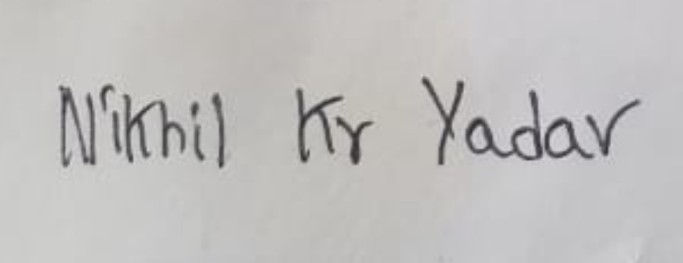 Nikhil Kr Yadav